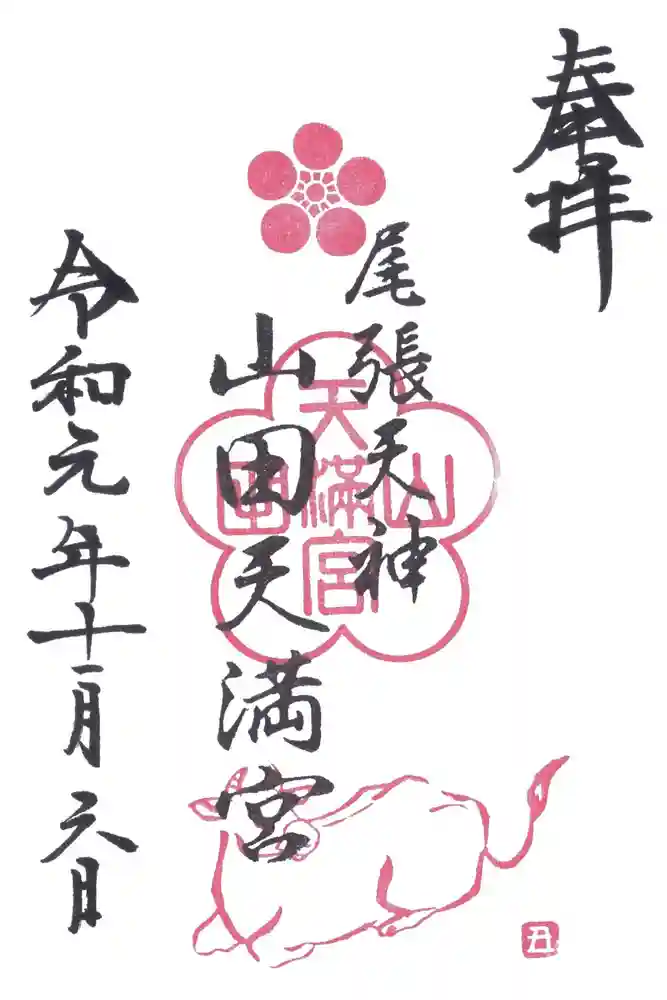 奉拝
尾張天神
山田天満宮
山
天滿宮
田
令和元年十一月六日
丑